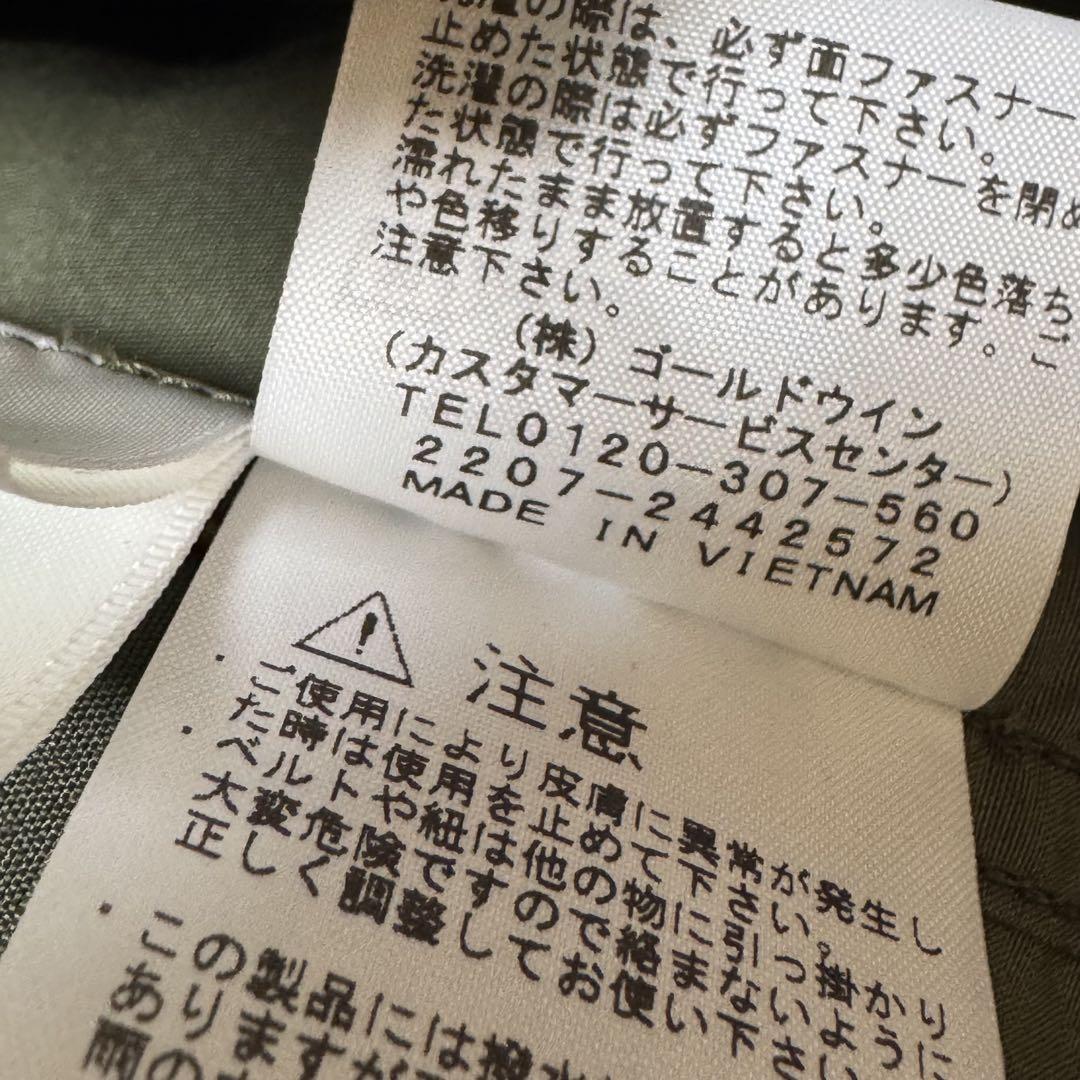 の際は、必ず面ファスナー
止めた状態で行って下さい。
洗濯の際は必ずファスナーを閉め
た状態で行って下さい。
濡れたまま放置すると多少色落ち
や色移りすることがあります。ご
注意下さい。
(株)ゴールドウイン
(カスタマーサービスセンター)
TEL0120-307-560
2207-2442572
MADE IN VIETNAM
注意
・ご使用により皮膚に異常が発生し
た時は使用を止めて下さい。
・ベルトや紐は他の物に引っ掛かり
大変危険ですので絡まないように
正しく調整してお使い下さい
・この製品には撥水
ありますが
雨の